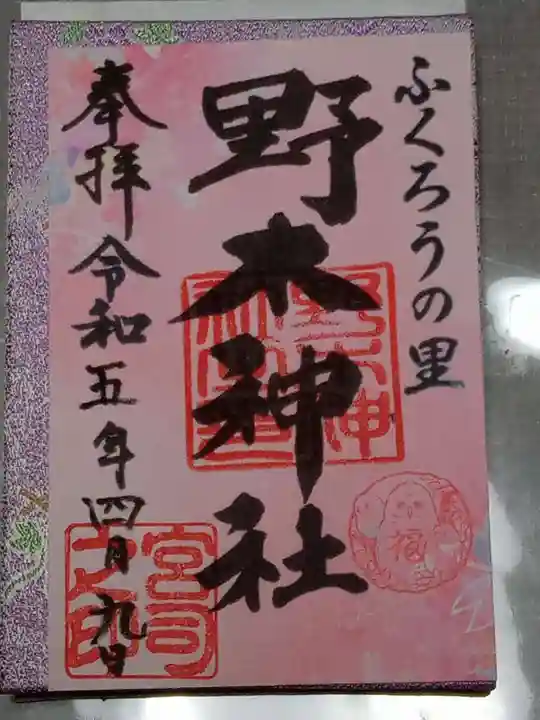 ふくろうの里
野木神社
奉拝 令和五年四月九日
福
宮司之印